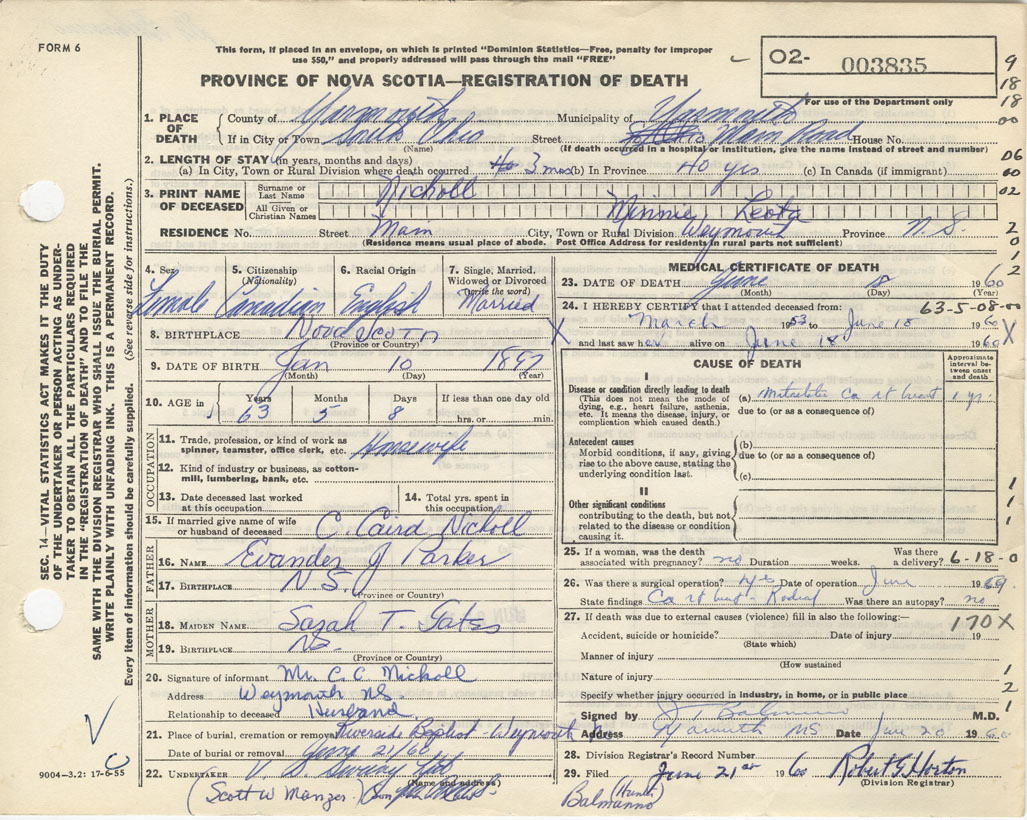 FORM 6
This form, if placed in an envelope, on which is printed "Dominion Statistics—Free, penalty for improper
use $50," and properly addressed will pass through the mail "FREE"
PROVINCE OF NOVA SCOTIA—REGISTRATION OF DEATH
O2- 003835
For use of the Department only
9
18
18
00
06
60
02
2
0
1
2
1. PLACE OF DEATH
County of Yarmouth Municipality of Yarmouth
If in City or Town South Ohio Street Main Road House No.
(Name) (If death occurred in a hospital or institution, give the name instead of street and number)
2. LENGTH OF STAY (in years, months and days)
(a) In City, Town or Rural Division where death occurred 3 mos (b) In Province 40 yrs (c) In Canada (if immigrant)
3. PRINT NAME OF DECEASED
Surname or Last Name Nicholl
All Given or Christian Names Minnie Leota
RESIDENCE No. Street Main City, Town or Rural Division Weymouth Province N.S.
(Residence means usual place of abode. Post Office Address for residents in rural parts not sufficient)
4. Sex Female
5. Citizenship (Nationality) Canadian
6. Racial Origin English
7. Single, Married, Widowed or Divorced (write the word) Married
8. BIRTHPLACE Nova Scotia
(Province or Country)
9. DATE OF BIRTH Jan 10 1897
(Month) (Day) (Year)
10. AGE in Years Months Days If less than one day old
63 5 8 hrs. or min.
OCCUPATION
11. Trade, profession, or kind of work as spinner, teamster, office clerk, etc. Housewife
12. Kind of industry or business, as cotton-mill, lumbering, bank, etc.
13. Date deceased last worked at this occupation
14. Total yrs. spent in this occupation
15. If married give name of wife or husband of deceased C. Caird Nicholl
FATHER
16. NAME Evander J Parker
17. BIRTHPLACE N.S.
(Province or Country)
MOTHER
18. MAIDEN NAME Sarah T. Gates
19. BIRTHPLACE NS.
(Province or Country)
20. Signature of informant Mr. C. C Nicholl
Address Weymouth NS.
Relationship to deceased Husband
21. Place of burial, cremation or removal Riverside Baptist - Weymouth
Date of burial or removal June 21/60
22. UNDERTAKER
(Name and address)
(Scott W Manzer
MEDICAL CERTIFICATE OF DEATH
23. DATE OF DEATH June 18 1960
(Month) (Day)
24. I HEREBY CERTIFY that I attended deceased from: 63-5-08-
X March 1953 to June 18 1960 X
and last saw her alive on June 18 1960
CAUSE OF DEATH
Approximate interval between onset and death
I
Disease or condition directly leading to death
(This does not mean the mode of dying, e.g., heart failure, asthenia, etc. It means the disease, injury, or complication which caused death.)
(a) Metastatic Ca rt breast 1 yr.
due to (or as a consequence of)
Antecedent causes
Morbid conditions, if any, giving rise to the above cause, stating the underlying condition last.
(b)
due to (or as a consequence of)
(c)
II
Other significant conditions
contributing to the death, but not related to the disease or condition causing it.
1
1
1
25. If a woman, was the death associated with pregnancy? no Duration weeks. Was there a delivery? 6-18-0
26. Was there a surgical operation? yes Date of operation June 19
State findings Ca rt breast - Radical Was there an autopsy? no
27. If death was due to external causes (violence) fill in also the following:— 170X
Accident, suicide or homicide? Date of injury 19
(State which)
Manner of injury
(How sustained
Nature of injury 1
Specify whether injury occurred in industry, in home, or in public place 2
Signed by Balmanno M.D. 1
Address Yarmouth NS Date June 20 1960
28. Division Registrar's Record Number
29. Filed June 21st 1960 Robert G. Horton
(Division Registrar)
Balmanno (Hunter)
SEC. 14—VITAL STATISTICS ACT MAKES IT THE DUTY
OF THE UNDERTAKER OR PERSON ACTING AS UNDER-
TAKER TO OBTAIN ALL THE PARTICULARS REQUIRED
IN THE "REGISTRATION OF DEATH" AND TO FILE THE
SAME WITH THE DIVISION REGISTRAR WHO SHALL ISSUE THE BURIAL PERMIT.
WRITE PLAINLY WITH UNFADING INK. THIS IS A PERMANENT RECORD.
Every item of information should be carefully supplied. (See reverse side for instructions.)
9004—3.2: 17-6-55